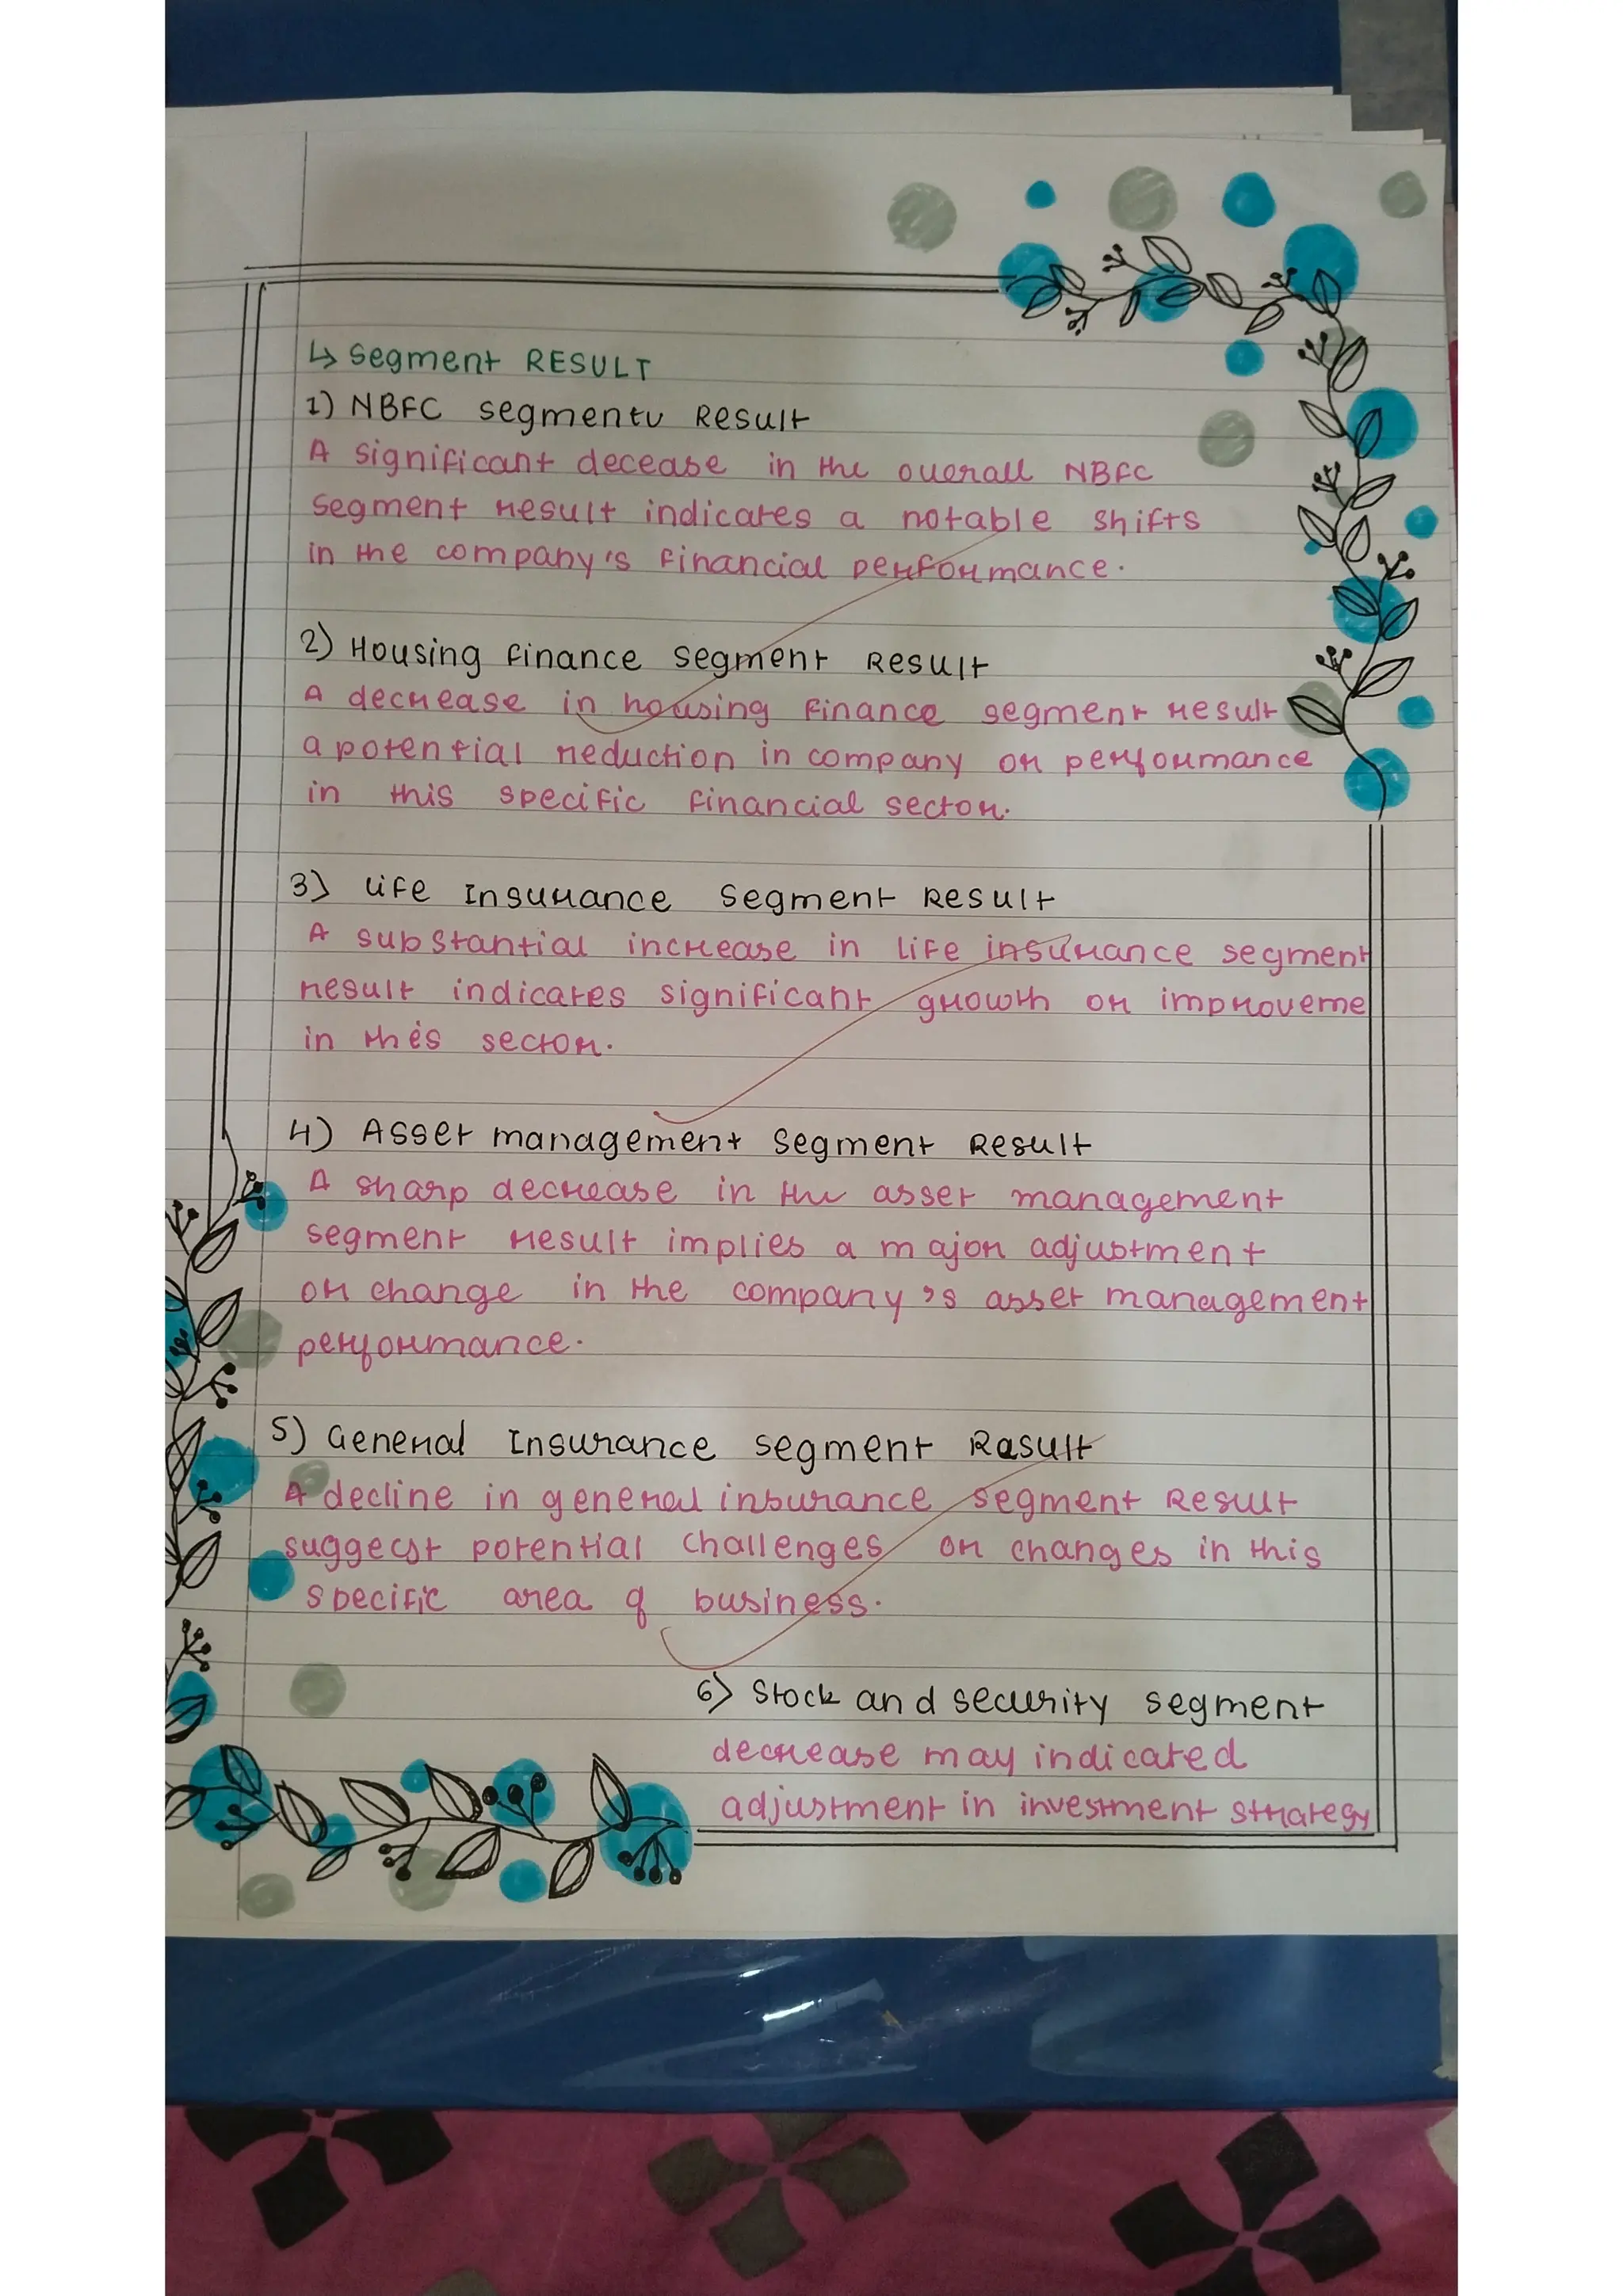 ↳ Segment RESULT
1) NBFC segmentv Result
A significant decease in the overall NBFC
segment result indicates a notable shifts
in the company's financial performance.
2) Housing finance segment Result
A decrease in housing finance segment result
a potential reduction in company or performance
in this specific financial sector.
3) Life Insurance Segment Result
A substantial increase in life insurance segment
result indicates significant growth or improveme
in this sector.
4) Asset management segment Result
A sharp decrease in the asset management
segment result implies a major adjustment
or change in the company's asset management
performance.
5) General Insurance segment Rasult
A decline in general insurance segment Result
suggecst potential challenges or changes in this
specific area of business.
6) Stock and security segment
decrease may indicated
adjustment in investment strategy